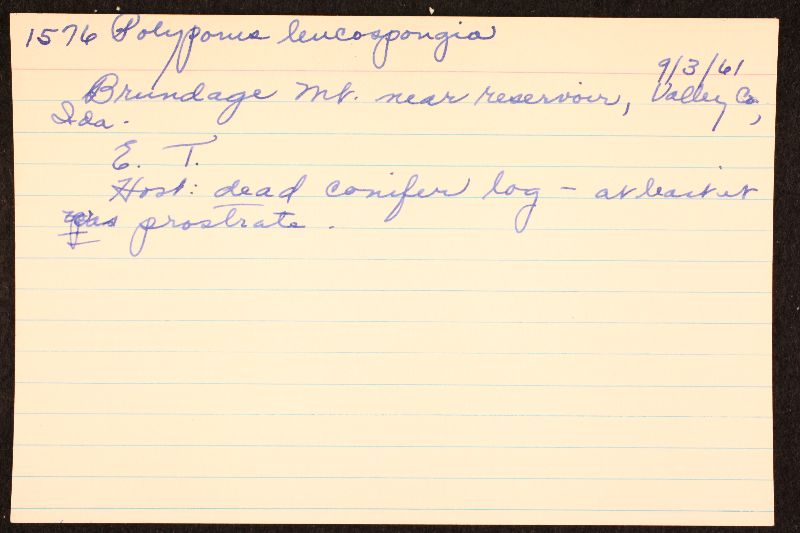 1576 Polyporus leucospongia
9/3/61
Brundage Mt. near reservoir, Valley Co.,
Ida.
E. T.
Host: dead conifer log – at least it
was prostrate.